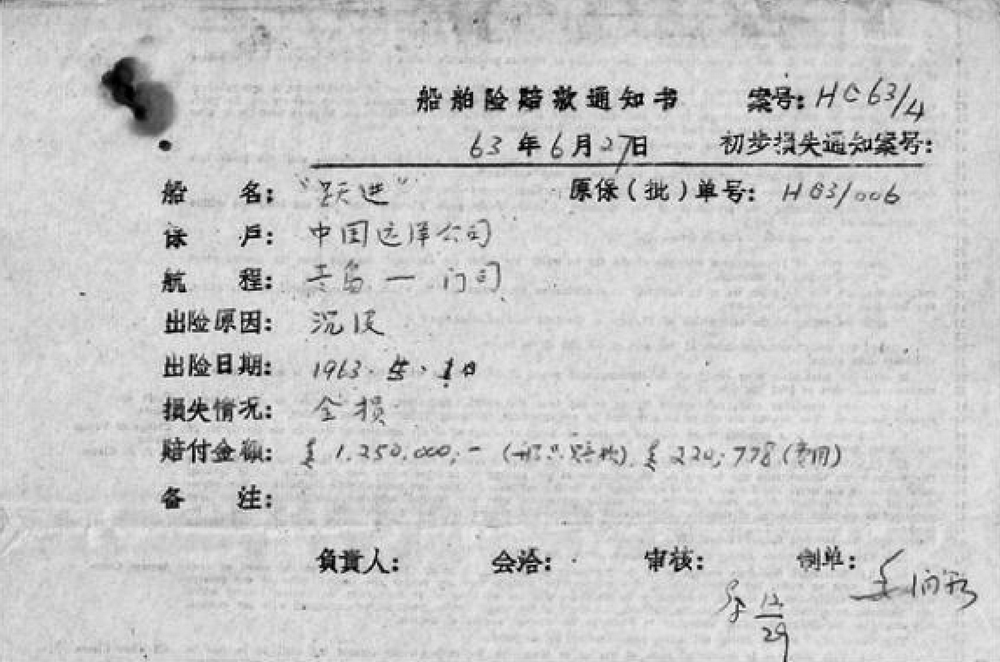 船舶险赔款通知书 案号: HC63/4
63年6月27日 初步损失通知案号:
船 名: "跃进" 原保(批)单号: HC63/006
保 户: 中国远洋公司
航 程: 青岛 — 门司
出险原因: 沉没
出险日期: 1963.5.1日
损失情况: 全损
赔付金额: £ 1,250,000,- (船只赔款) £ 220,778 (费用)
备 注:
负责人: 会洽: 审核: 制单:
12/29